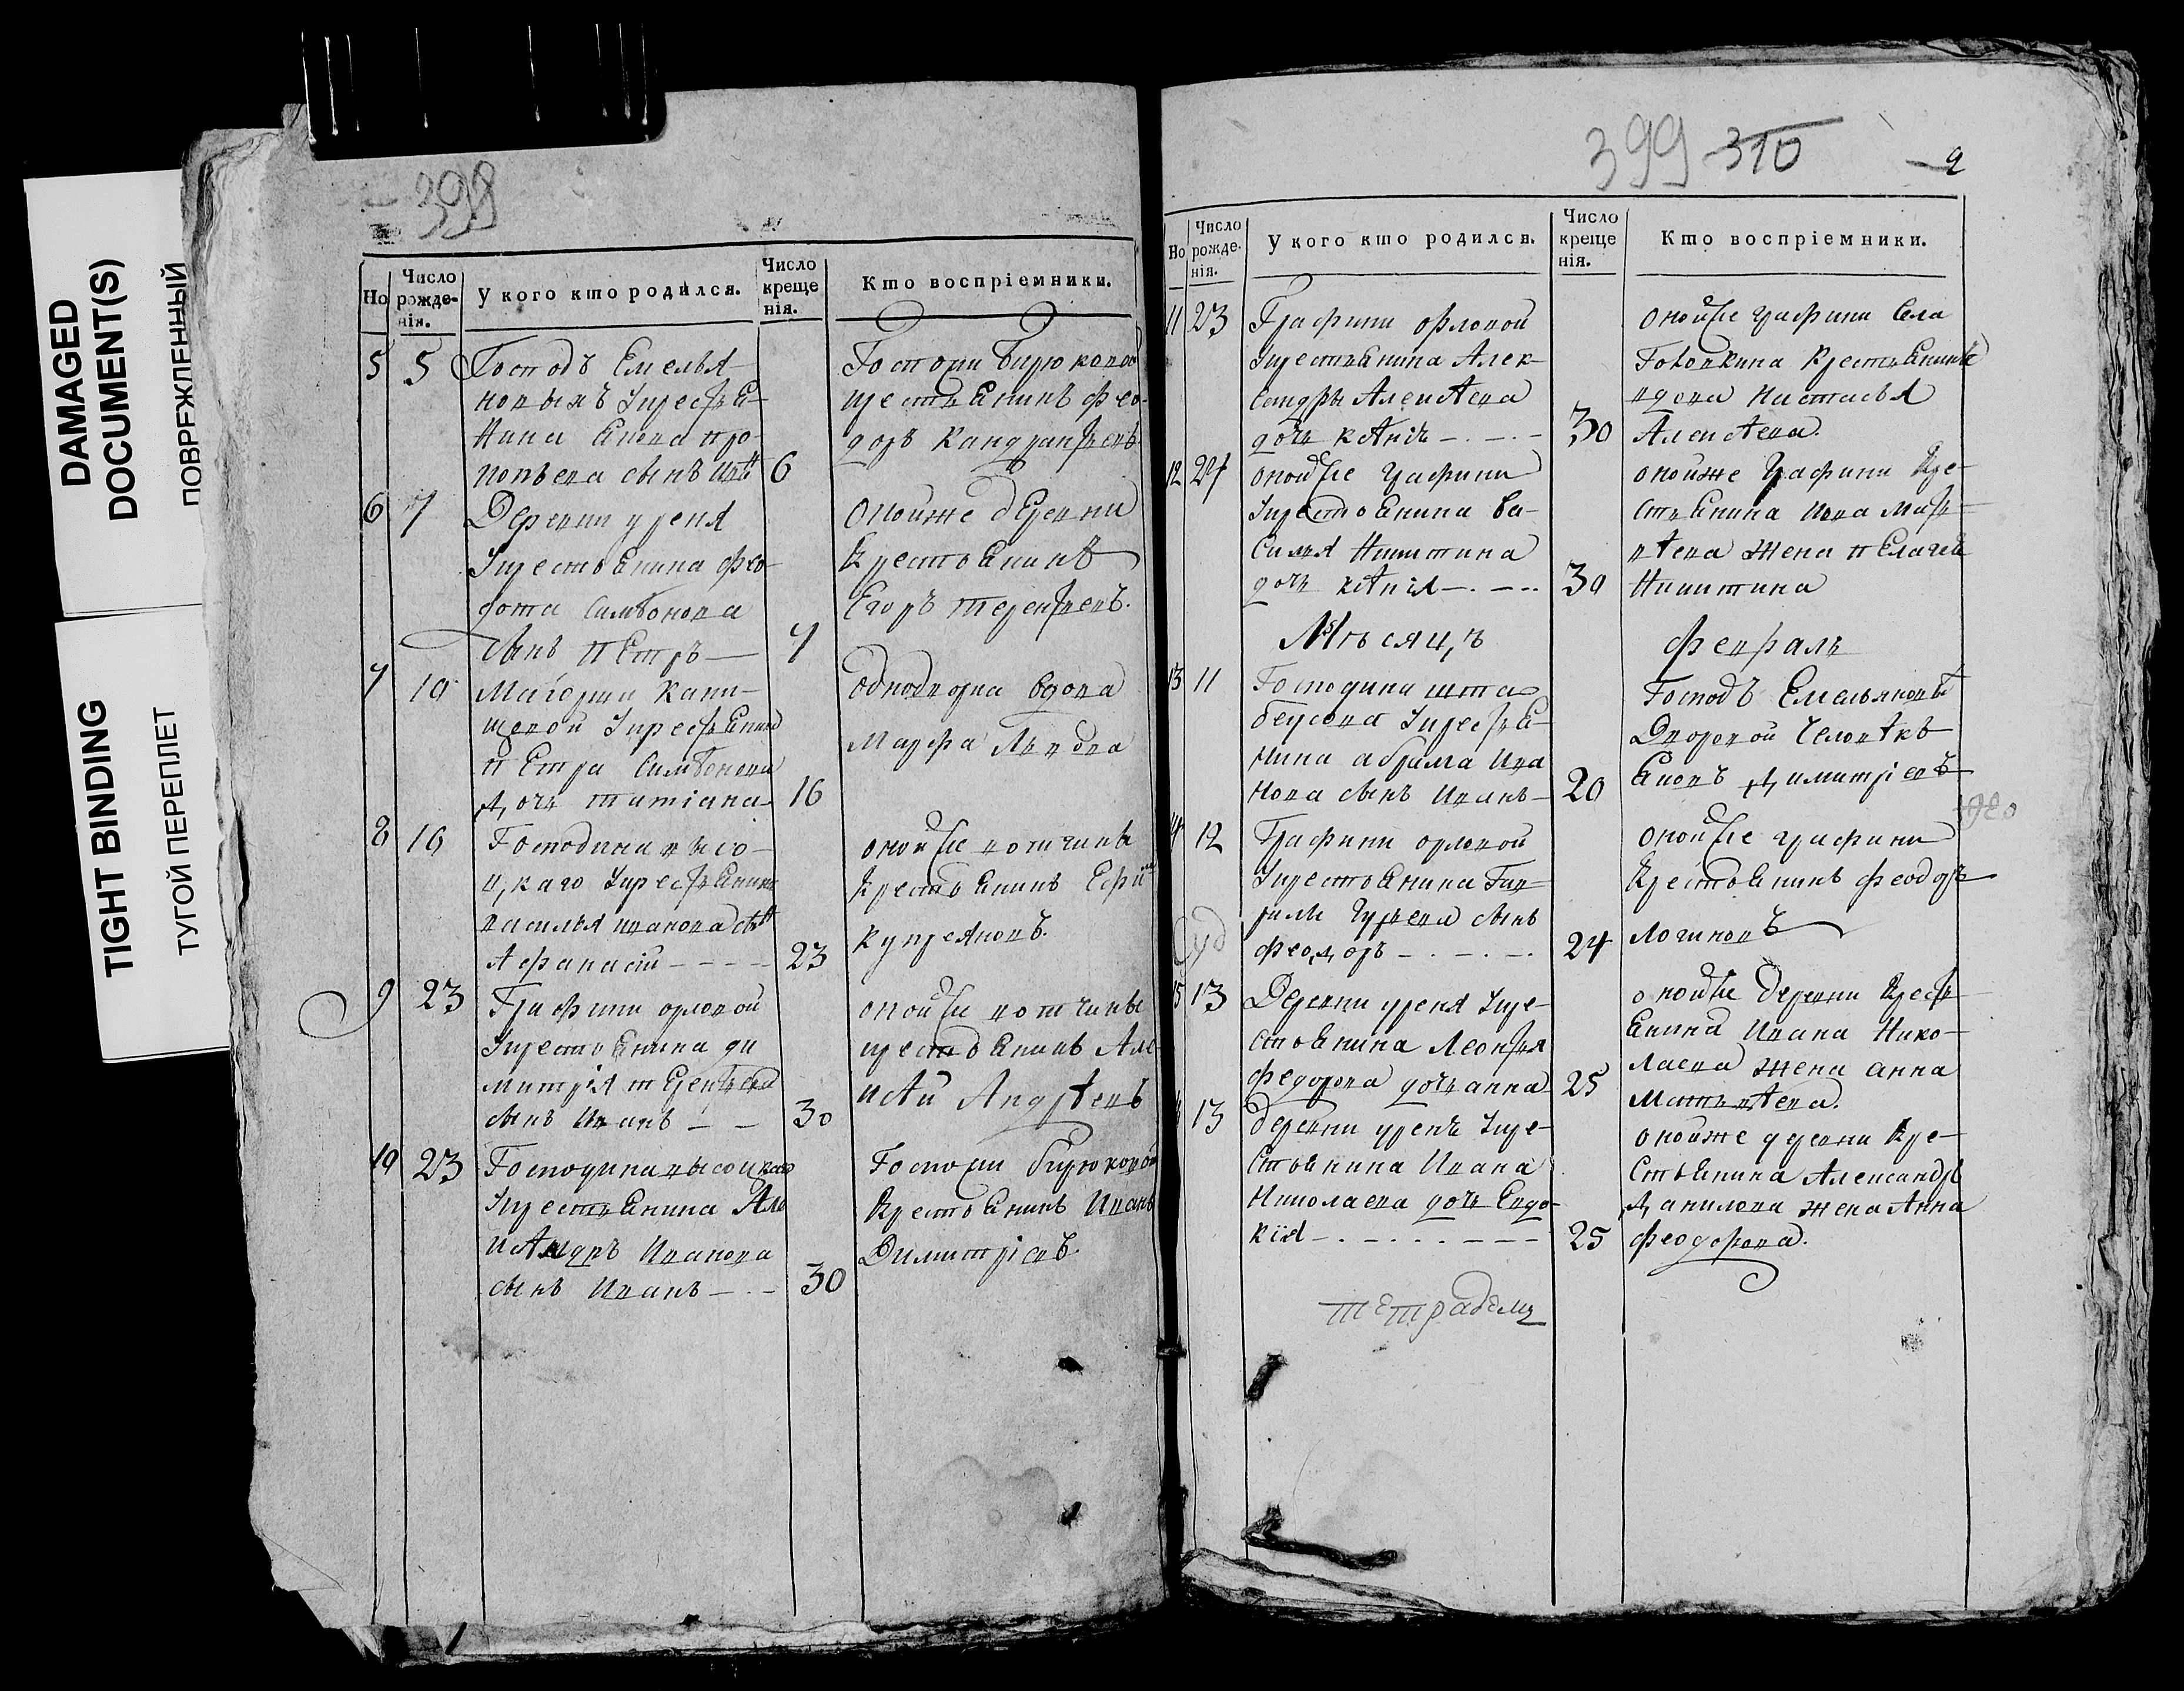 DAMAGED
DOCUMENT(S)
ПОВРЕЖДЕННЫЙ
TIGHT BINDING
ТУГОЙ ПЕРЕПЛЕТ
Но
Число рожде-нія.
У кого кто родился.
Число креще нія.
Кто воспріемники.
5 5 Господъ Емелья-
новыхъ крестья-
нина
сынъ 6
Госпожи Бирюковой
крестьянинъ Фео-
доръ Кандратьевъ
6 7 Деревни уреня
крестьянина Фео-
дота Симеонова
сынъ Петръ — 7
оной же деревни
крестьянинъ
Егоръ Терентьевъ.
7 10 Маіорши
крестьянина
Петра Симеонова
дочь Татіана 16
однодворка вдова
Марфа Львова
8 16 Господина высо-
цкаго крестьянина
василья иванова сынъ
Афанасій - - - - 23
оной же вотчины
крестьянинъ Ефимъ
Купреяновъ.
9 23 Графини орловой
крестьянина ди
митрія терентьева
сынъ Иванъ — — 30
оной же вотчины
крестьянинъ Але-
ксѣй Андрѣевъ
10 23 Господина высоцкаго
крестьянина Але
ксандръ Иванова
сынъ Иванъ — · — 30
Госпожи Бирюковой
крестьянинъ Иванъ
Димитріевъ.
399 310
Но
Число рожде-нія.
У кого кто родился.
Число креще нія.
Кто воспріемники.
11 23 Графини орловой
крестьянина Алек-
сандры Алексѣева
дочь ксѣнія —.—.— 30
оной же графини села
крестьянина
вдова Настасья
Алексѣева.
12 24 оной же графини
крестьянина Ва-
силья Никитина
дочь ксѣнія —.—.. 30
оной же графини кре-
стьянина
жена пелагея
Никитина
Мѣсяцъ февраль
13 11 Господина шта
крестья-
нина абрама Ива
нова сынъ Иванъ — 20
Господъ Емельяновыхъ
Дворовой человѣкъ
Димитріевъ
14 12 Графини орловой
крестьянина Гав-
рилы Гурьева сынъ
феодоръ —.—.—. 24
оной же графини
крестьянинъ феодоръ
Логиновъ
15 13 Деревни уреня кре-
стьянина Леонтья
федорова дочь анна 25
оной же деревни крест-
янина Ивана Нико-
лаева жена анна
Матвѣева.
13 деревни урень кре-
стьянина Ивана
Николаева дочь Евдо-
кія —.—..——— 25
оной же деревни кре-
стьянина Александръ
Данилова жена Анна
феодорова.